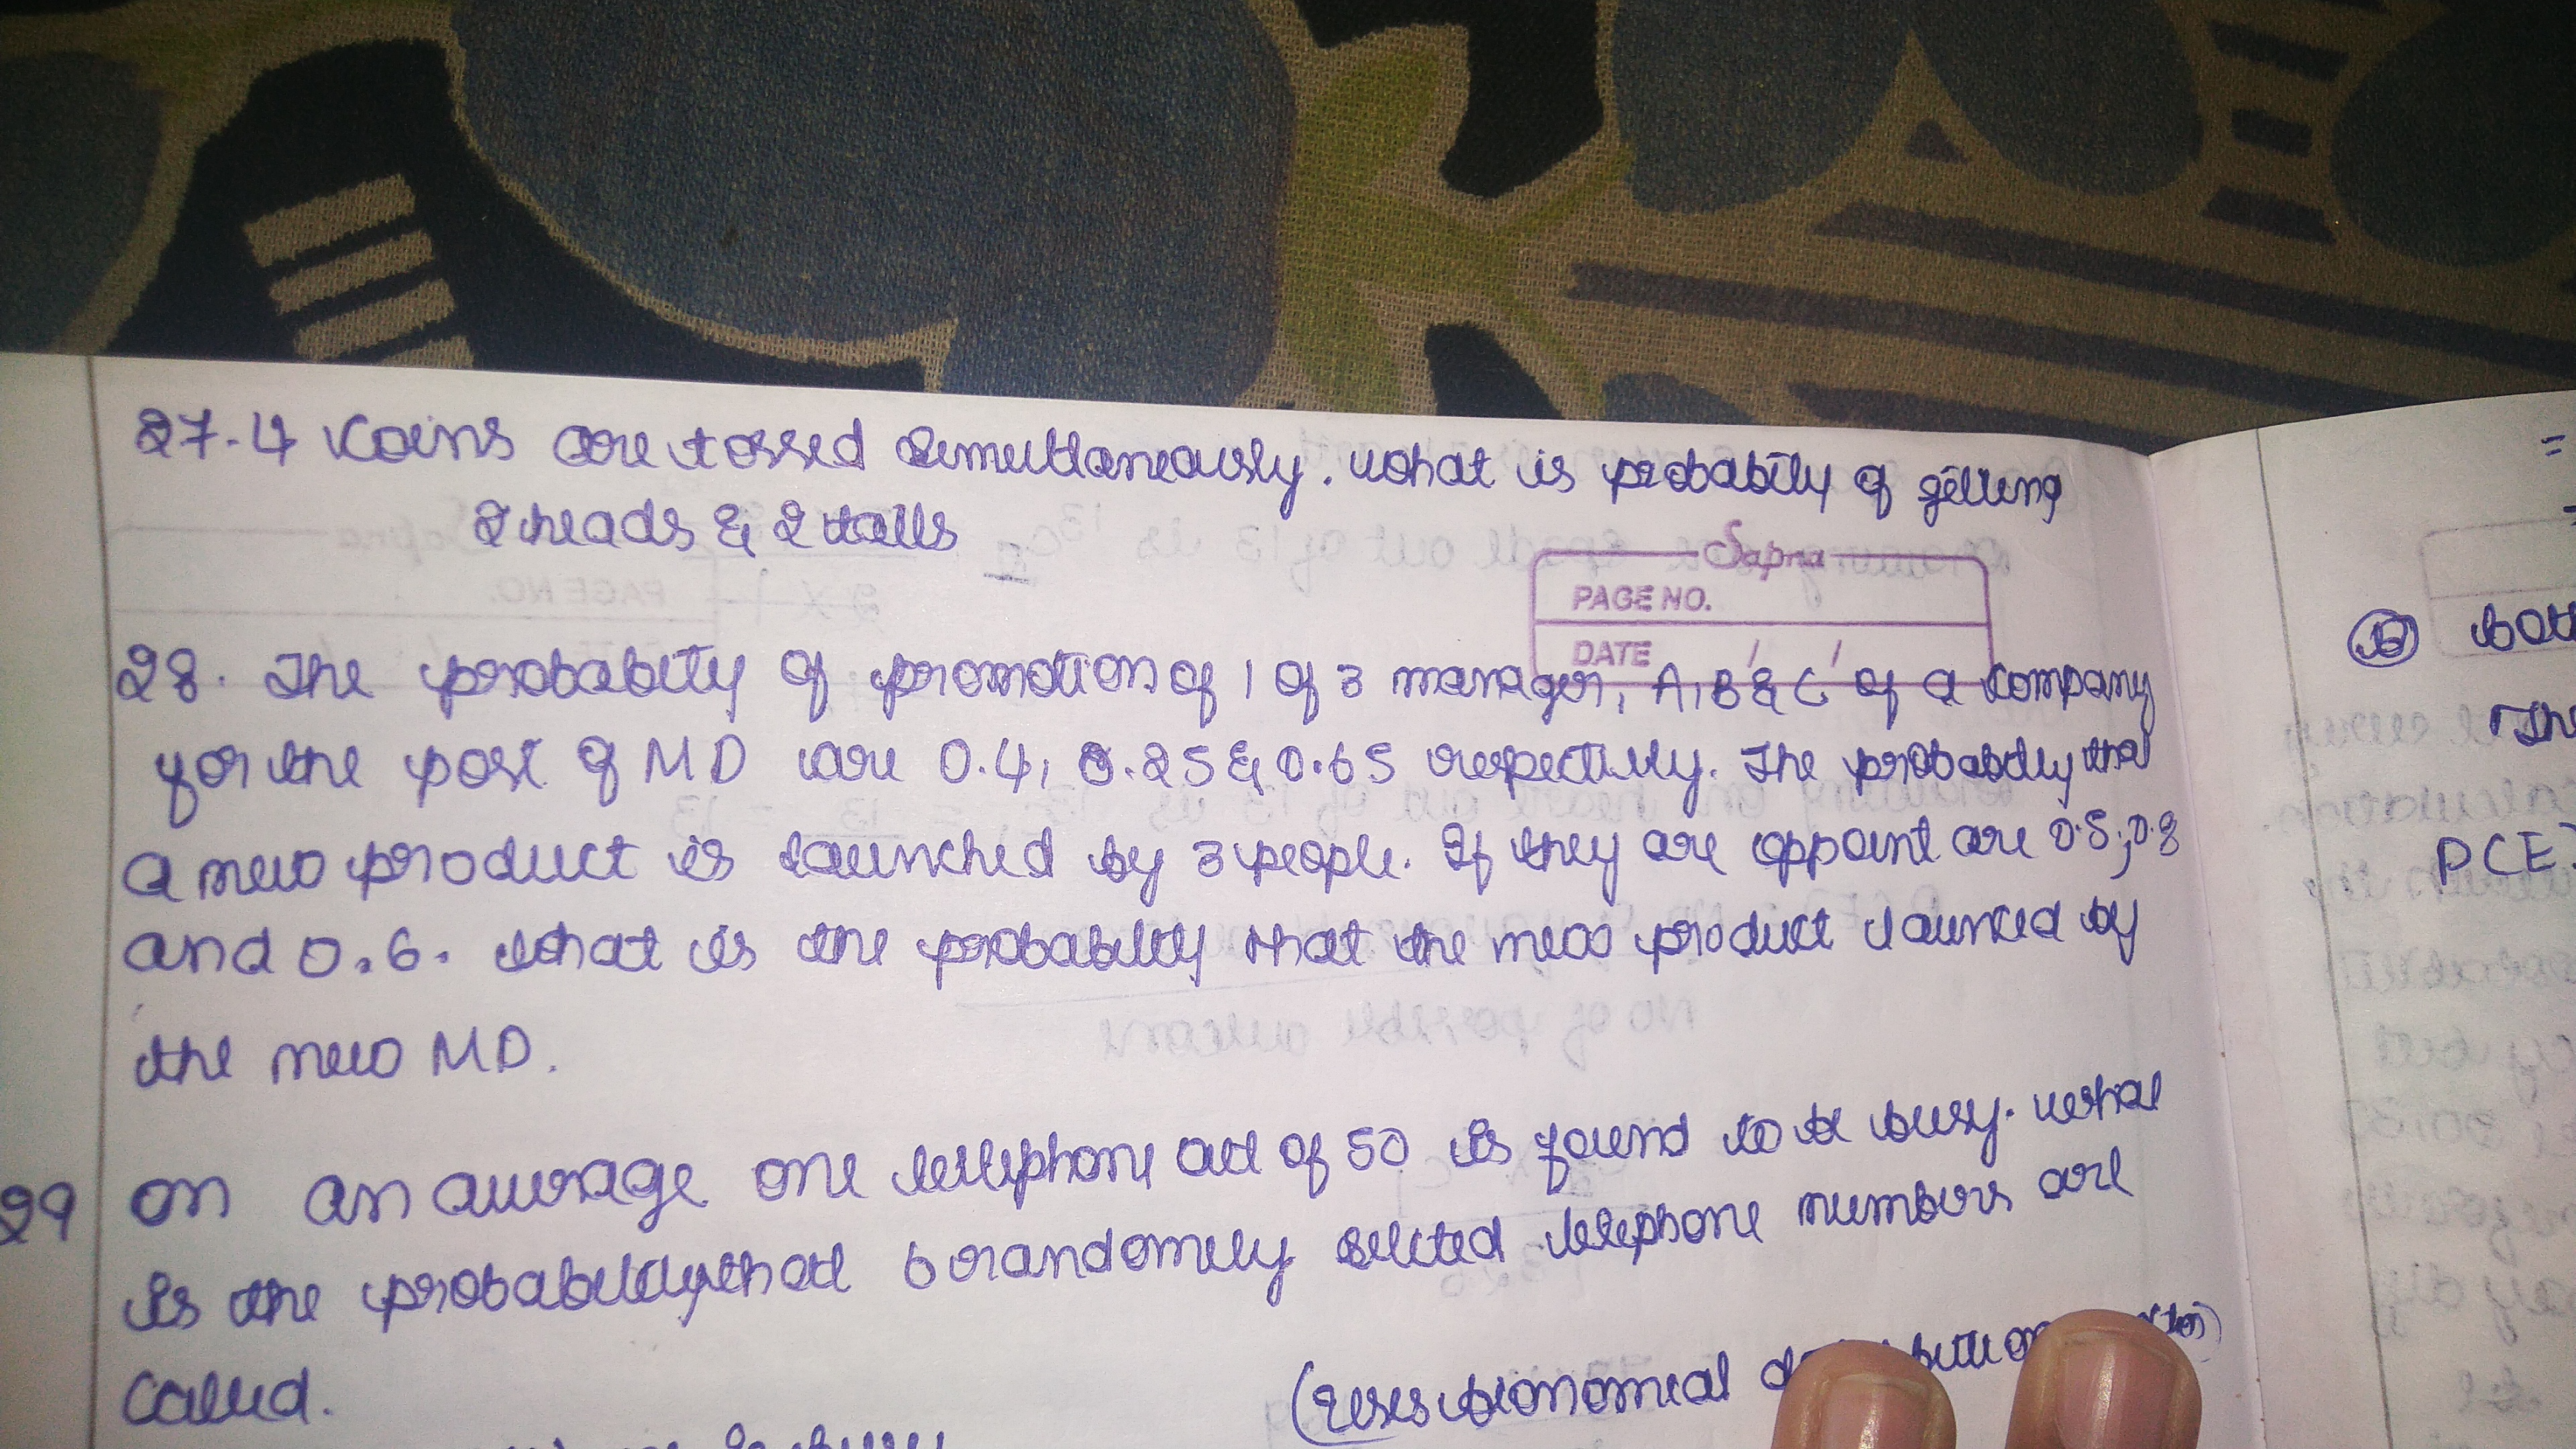 Sapna
PAGE NO.
DATE
27. 4 coins are tossed simultaneously. What is probability of getting
2 heads & 2 tails
28. The probability of promotion of 1 of 3 manager, A, B & C of a company
for the post of MD are 0.4, 0.25 & 0.65 respectively. The probability that
a new product is launched by 3 people. If they are appoint are 0.5, 0.8
and 0.6. What is the probability that the new product launced by
the new MD.
29 on an average one telephone out of 50 is found to be busy. What
is the probability that 6 randomly selected telephone numbers are
called.
(use binomial
6